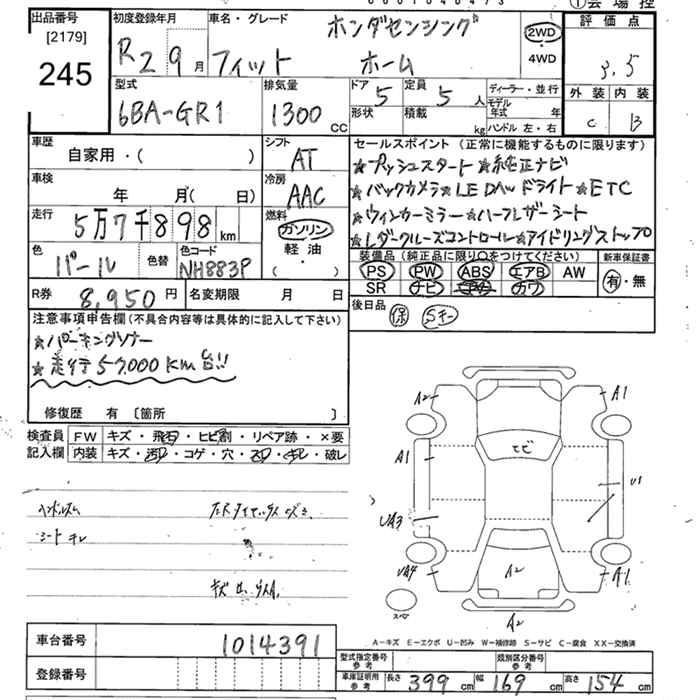 出品番号
[2179]
245
初度登録年月
R2 9月
車名・グレード
ホンダセンシング
フィット ホーム
2WD
・
4WD
評価点
3.5
外装 内装
C B
型式
6BA-GR1
排気量
1300 CC
ドア 5
形状
定員 5 人
積載 kg
ディーラー・並行
モデル年式 年
ハンドル 左・右
車歴
自家用・( )
シフト
AT
車検
年 月( 日)
冷房
AAC
走行
5万7千898 km
燃料
ガソリン
軽・油
( )
色
パール
色替
色コード
NH883P
セールスポイント (正常に機能するものに限ります)
★プッシュスタート★純正ナビ
★バックカメラ★LED ドライト★ETC
★ウィンカーミラー★ハーフレザーシート
★レダークルーズコントロール★アイドリングストップ
装備品 (純正品に限り○をつけてください)
新車保証書
PS PW ABS エアB AW
SR ナビ カワ
有・無
R券 8,950 円
名変期限 月 日
後日品
保 Sキー
注意事項申告欄(不具合内容等は具体的に記入して下さい)
★パーキングソナー
★走行57,000Km台!!
修復歴 有 〔箇所 〕
検査員記入欄
FW キズ・飛石・ヒビ割・リペア跡・×要
内装 キズ・汚・コゲ・穴・スレ・キレ・破レ
ハンドルスレ
シート キレ
A2 A1
ナビ
A1 U1
UA3
UA4 A2 A1
スペア
A2
A-キズ E-エクボ U-凹み W-補修跡 S-サビ C-腐食 XX-交換済
車台番号 1014391
登録番号
型式指定番号 参考
類別区分番号 参考
車庫証明用 参考
長さ 399 cm 幅 169 cm 高さ 154 cm